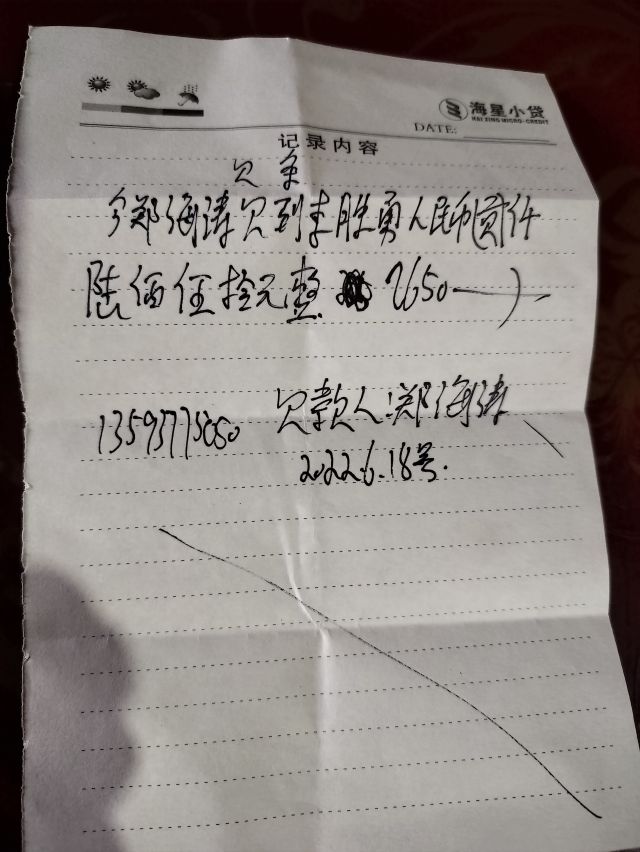 海星小贷
HAI XING MICRO-CREDIT
DATE:
记录内容
欠条
今郑海涛欠到李胜勇人民币贰仟
陆佰伍拾元整 2650
欠款人:郑海涛
2022.6.18号.